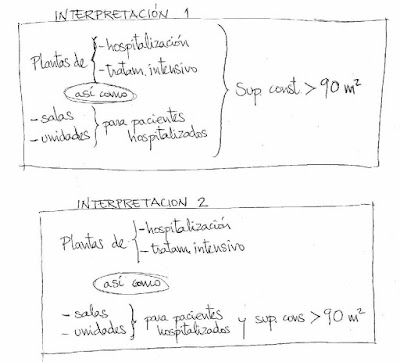 INTERPRETACIÓN 1
Plantas de { -hospitalización
-tratam. intensivo
así como
- salas
- unidades } para pacientes hospitalizados
} Sup. const. > 90 m²
INTERPRETACION 2
Plantas de { -hospitalización
-tratam. intensivo
así como
- salas
- unidades } para pacientes hospitalizados y sup. cons > 90 m²